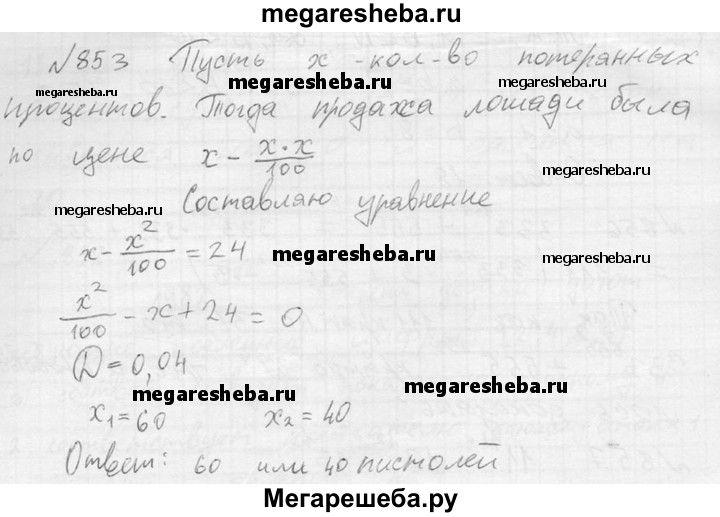 megaresheba.ru
№853 Пусть x - кол-во потерянных
megaresheba.ru megaresheba.ru
процентов. Тогда продажа лошади была
по цене x - x·x/100
megaresheba.ru
megaresheba.ru Составляю уравнение
x - x²/100 = 24 megaresheba.ru
x²/100 - x + 24 = 0
megaresheba.ru
D = 0,04
megaresheba.ru megaresheba.ru
x₁ = 60 x₂ = 40
Ответ: 60 или 40 пистолей
megaresheba.ru
Мегарешеба.ру